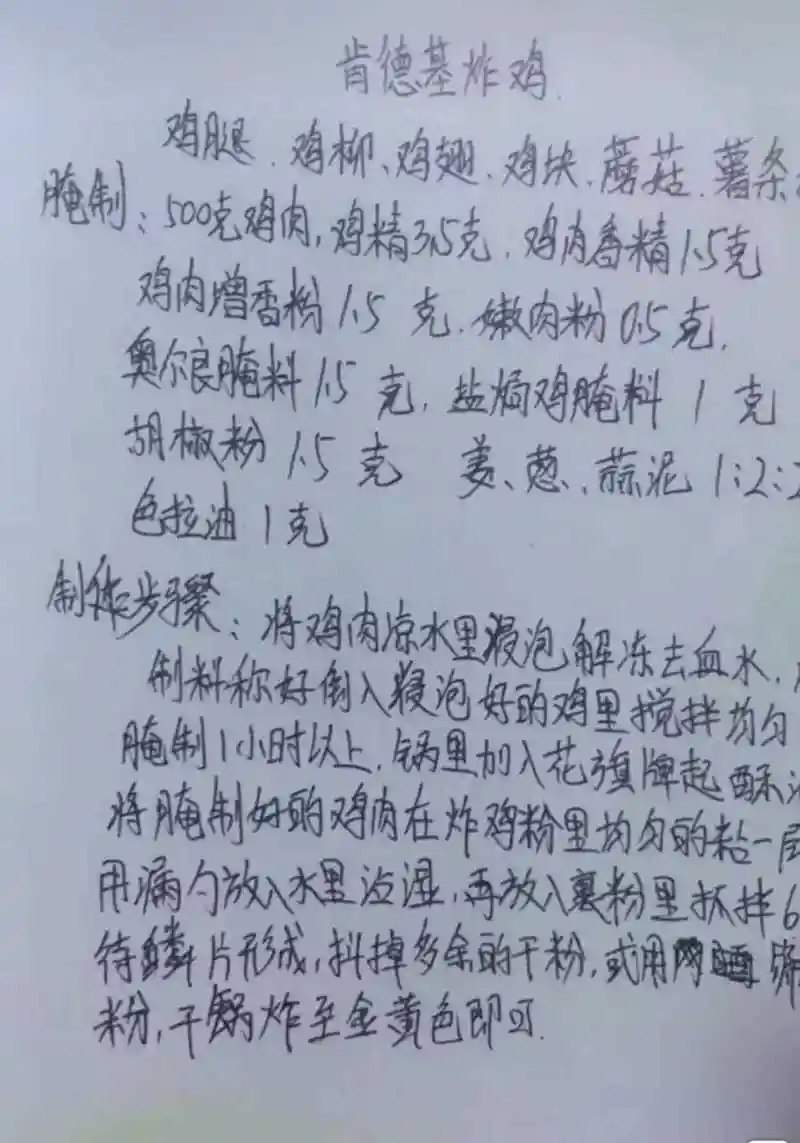 肯德基炸鸡
鸡腿、鸡柳、鸡翅、鸡块、蘑菇、薯条
腌制：500克鸡肉，鸡精3.5克，鸡肉香精1.5克
鸡肉增香粉1.5克，嫩肉粉0.5克，
奥尔良腌料1.5克，盐焗鸡腌料1克
胡椒粉1.5克 姜、葱、蒜泥1:2:2
色拉油1克
制作步骤：将鸡肉凉水里浸泡解冻去血水，
制料称好倒入浸泡好的鸡里搅拌均匀
腌制1小时以上，锅里加入花旗牌起酥
将腌制好的鸡肉在炸鸡粉里均匀的粘一层
用漏勺放入水里沾湿，再放入裹粉里抓拌6
待鳞片形成，抖掉多余的干粉，或用网
粉，干锅炸至金黄色即可.